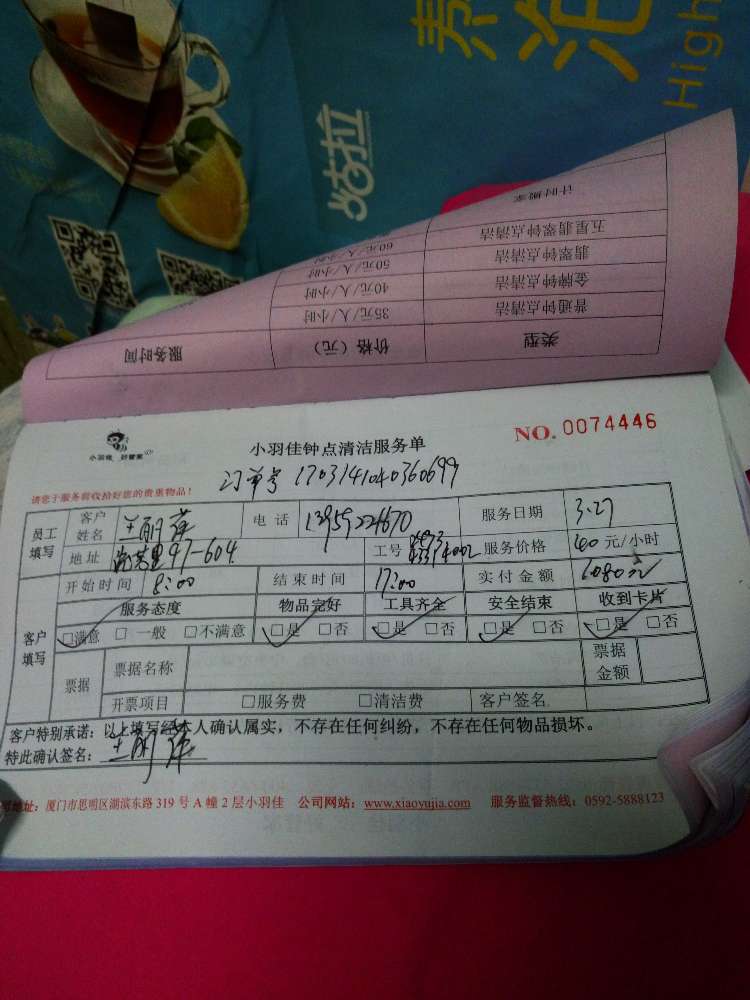 泰
High
咕拉
计时搬家
五星翡翠钟点清洁 60元/人/小时
翡翠钟点清洁 50元/人/小时
金牌钟点清洁 40元/人/小时
普通钟点清洁 35元/人/小时
类型 价格（元） 服务时间
小羽佳 好管家
小羽佳钟点清洁服务单
NO. 0074446
订单号 1703141040360699
请您于服务前收拾好您的贵重物品！
员工填写 客户姓名 兰丽萍 电话 13959224670 服务日期 3.27
地址 97-604 工号 服务价格 40元/小时
开始时间 8:00 结束时间 17:00 实付金额
客户填写 服务态度 物品完好 工具齐全 安全结束 收到卡片
☑满意 □一般 □不满意 ☑是 □否 ☑是 □否 ☑是 □否 ☑是 □否
票据 票据名称 票据金额
开票项目 □服务费 □清洁费 客户签名
客户特别承诺：以上填写经本人确认属实，不存在任何纠纷，不存在任何物品损坏。
特此确认签名：兰丽萍
地址：厦门市思明区湖滨东路319号A幢2层小羽佳 公司网站：www.xiaoyujia.com 服务监督热线：0592-5888123